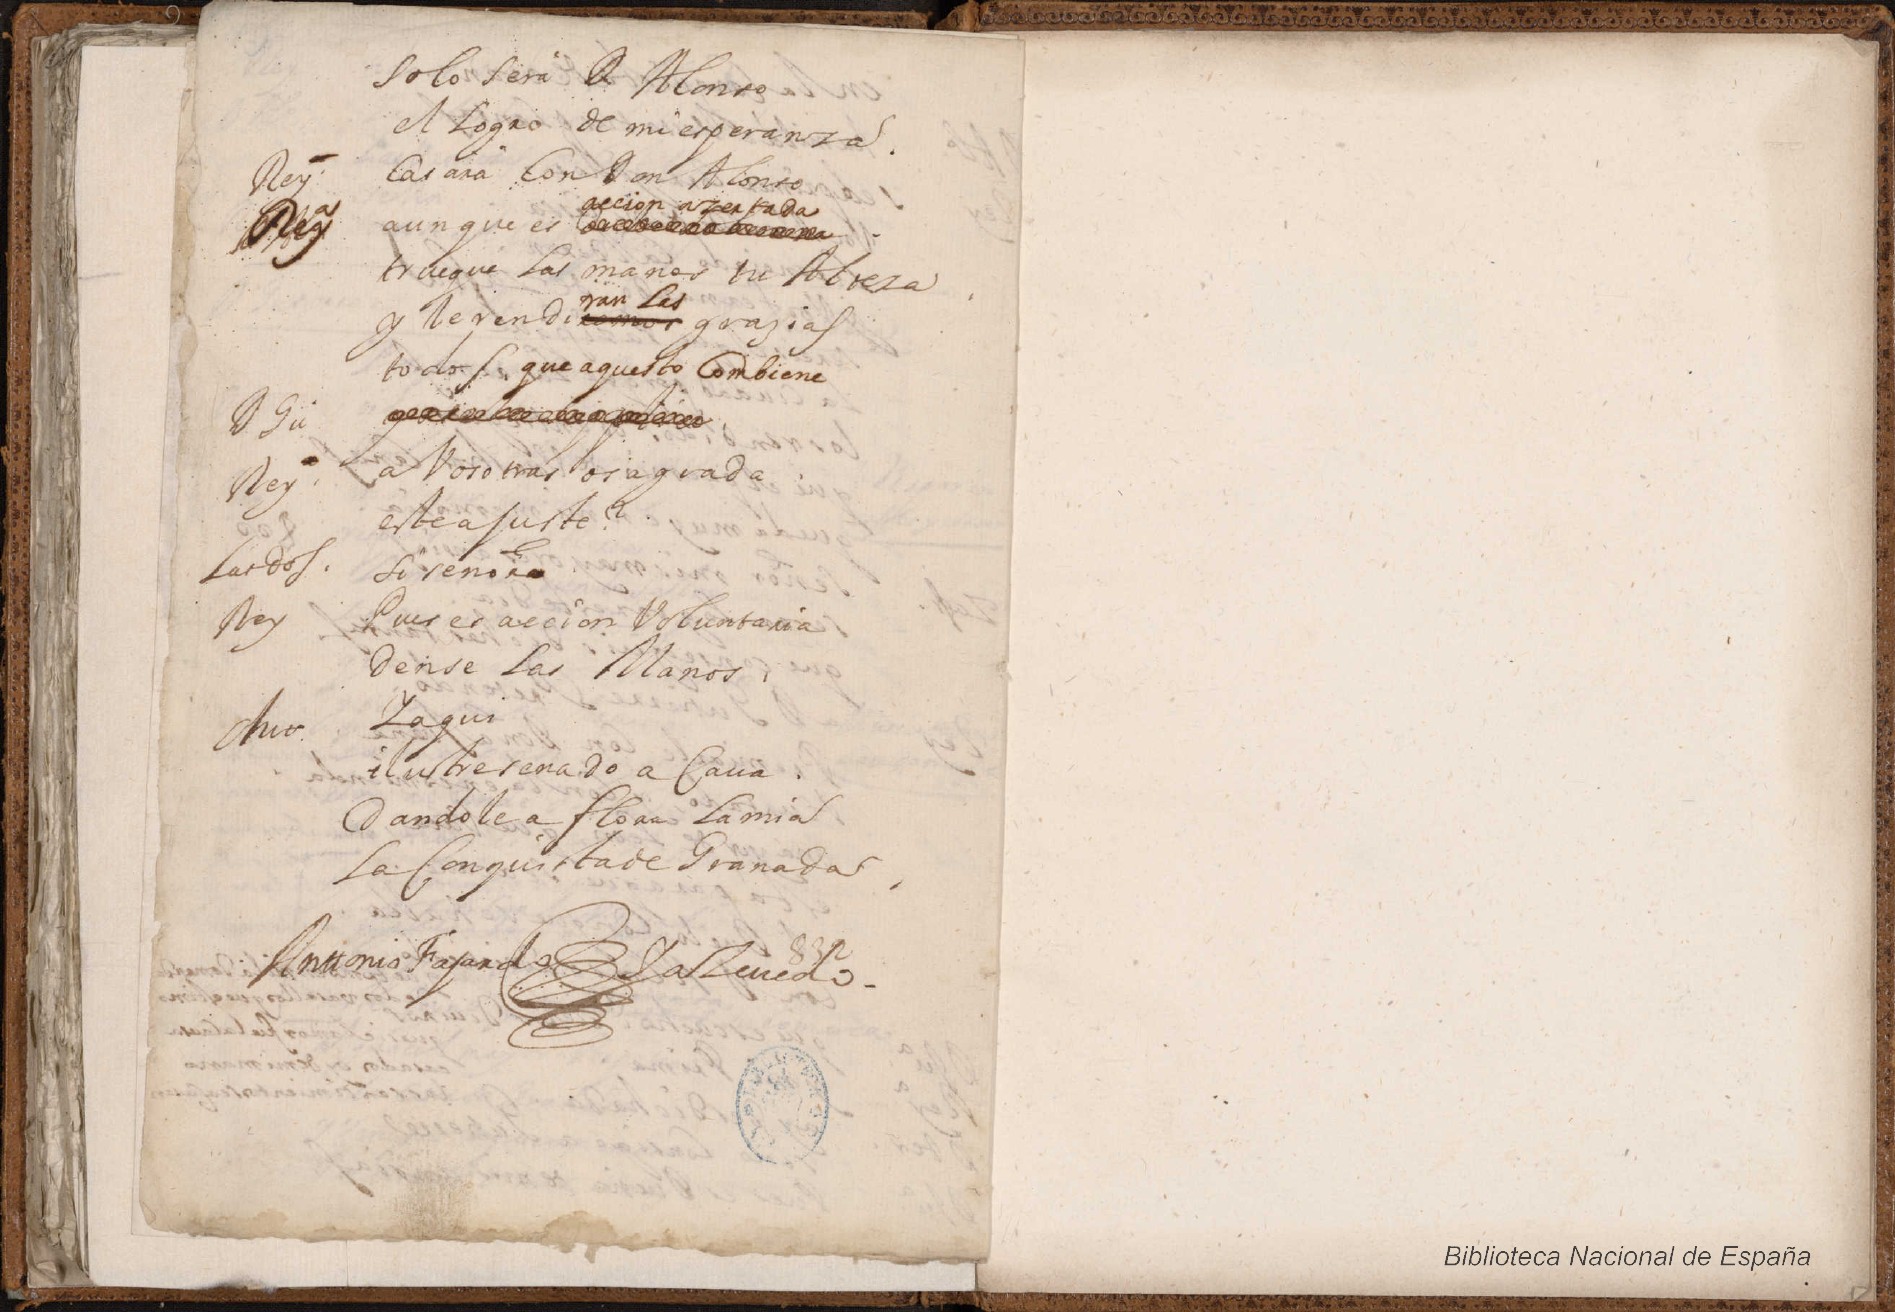 solo será D Alonso
el logro de mi esperanza.
Reyª. Casara Con Don Alonso
Reyª aunque es accion azertada
trueque las manos tu Alteza
y le rendiran las grazias
todos, que aquesto Combiene
D Gü
Reyª. a Vosotras os agrada
este ajuste?
Las dos. Si señora
Rey Pues es accion Voluntaria
dense las Manos.
Y aqui
ilustre senado aCaua
dandole a flora la mia
La Conquista de Granada
Anttonio Fajardo
Y aZeuedo
832
Biblioteca Nacional de España